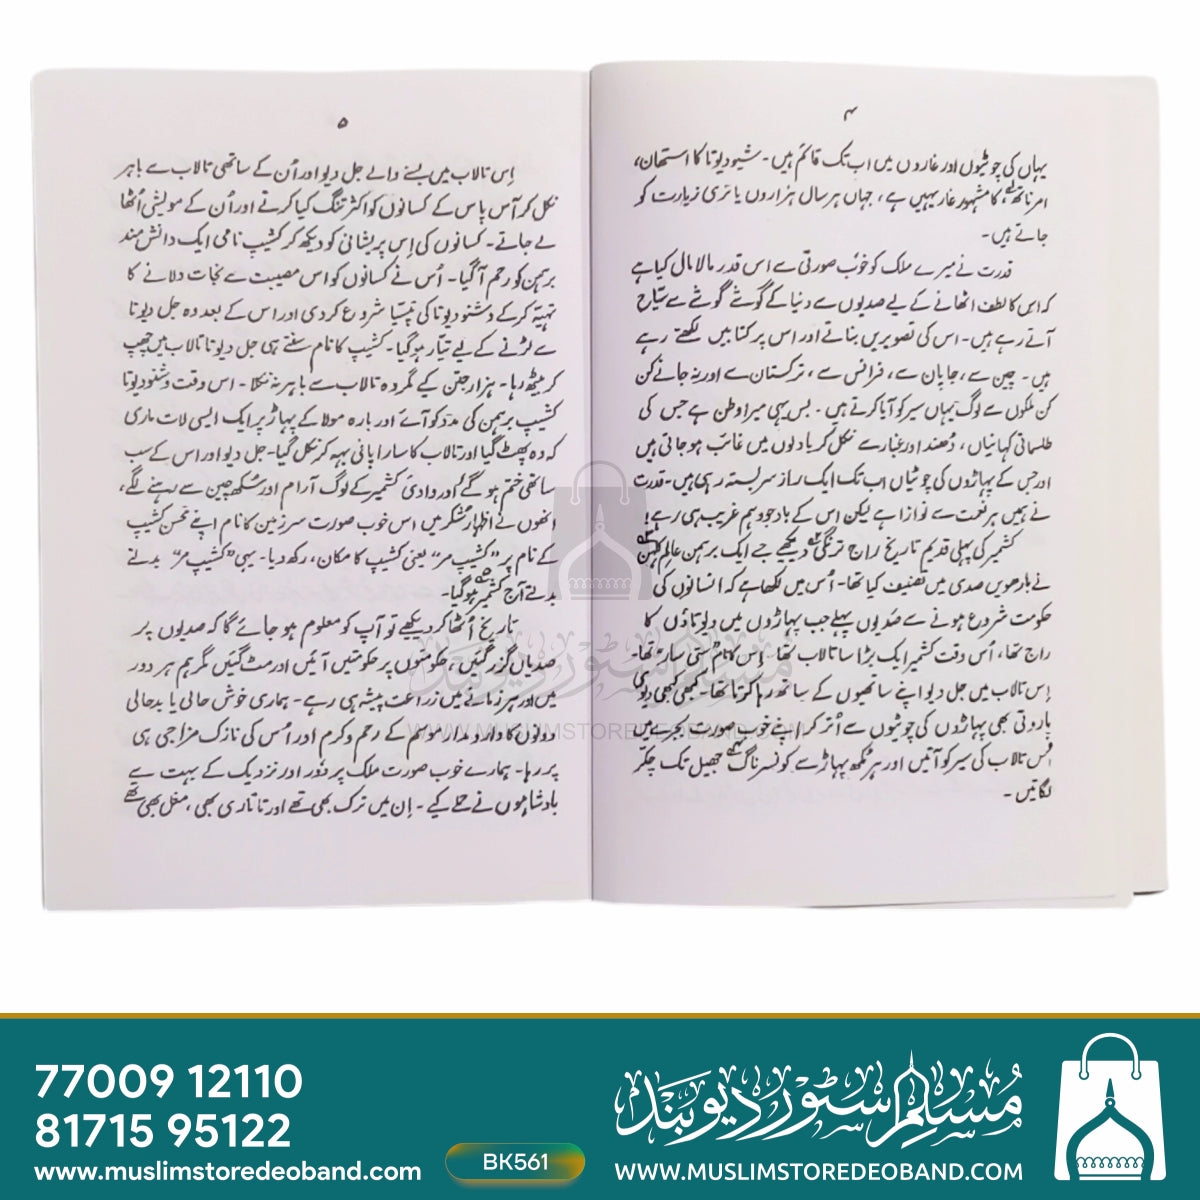 ۴
یہاں کی چوٹیوں اور غاروں میں اب تک قائم ہیں۔ شیو دیوتا کا استھان،
امرناتھ کا مشہور غار یہیں ہے، جہاں ہر سال ہزاروں یاتری زیارت کو
جاتے ہیں۔
قدرت نے میرے ملک کو خوب صورتی سے اس قدر مالا مال کیا ہے
کہ اس کا لطف اٹھانے کے لیے صدیوں سے دنیا کے گوشے گوشے سے سیّاح
آتے رہے ہیں۔ اس کی تصویریں بناتے اور اس پر کتابیں لکھتے رہے
ہیں۔ چین سے، جاپان سے، فرانس سے، ترکستان سے اور نہ جانے کن
کن ملکوں سے لوگ یہاں سیر کو آیا کرتے ہیں۔ بس یہی میرا وطن ہے جس کی
طلسماتی کہانیاں، دُھند اور غبار سے نکل کر بادلوں میں غائب ہو جاتی ہیں
اور جس کے پہاڑوں کی چوٹیاں اب تک ایک راز سربستہ رہی ہیں۔ قدرت
نے ہمیں ہر نعمت سے نوازا ہے لیکن اس کے باوجود ہم غریب ہی رہے!
کشمیر کی پہلی قدیم تاریخ راج ترنگنی دیکھیے جسے ایک برہمن عالم کلہن
نے بارھویں صدی میں تصنیف کیا تھا۔ اُس میں لکھا ہے کہ انسانوں کی
حکومت شروع ہونے سے صدیوں پہلے جب پہاڑوں میں دیوتاؤں کا
راج تھا، اُس وقت کشمیر ایک بڑا سا تالاب تھا۔ اِس کا نام "ستی سار" تھا۔
اِس تالاب میں جل دیو اپنے ساتھیوں کے ساتھ رہا کرتا تھا۔ کبھی کبھی دیوی
پاروتی بھی پہاڑوں کی چوٹیوں سے اُتر کر اپنے خوب صورت بجرے میں
اُس تالاب کی سیر کو آتیں اور ہرمُکھ پہاڑ سے کونسرناگ جھیل تک چکّر
لگاتیں۔
۵
اِس تالاب میں بسنے والے جل دیو اور اُن کے ساتھی تالاب سے باہر
نکل کر آس پاس کے کسانوں کو اکثر تنگ کیا کرتے اور اُن کے مویشی اُٹھا
لے جاتے۔ کسانوں کی اِس پریشانی کو دیکھ کر کشیپ نامی ایک دانش مند
برہمن کو رحم آگیا۔ اُس نے کسانوں کو اس مصیبت سے نجات دلانے کا
تہیّہ کرکے وشنو دیوتا کی تپسیا شروع کردی اور اس کے بعد وہ جل دیوتا
سے لڑنے کے لیے تیار ہوگیا۔ کشیپ کا نام سنتے ہی جل دیوتا تالاب میں چھپ
کر بیٹھ رہا۔ ہزار جتن کیے مگر وہ تالاب سے باہر نہ نکلا۔ اس وقت وشنو دیوتا
کشیپ برہمن کی مدد کو آئے اور بارہ مولا کے پہاڑ پر ایک ایسی لات ماری
کہ وہ پھٹ گیا اور تالاب کا سارا پانی بہہ کر نکل گیا۔ جل دیو اور اس کے سب
ساتھی ختم ہوگئے اور وادیٔ کشمیر کے لوگ آرام اور سُکھ چین سے رہنے لگے،
انھوں نے اظہارِ تشکّر میں اس خوب صورت سرزمین کا نام اپنے محسن کشیپ
کے نام پر "کشیپ مر" یعنی کشیپ کا مکان، رکھ دیا۔ یہی "کشیپ مر" بدلتے
بدلتے آج کشمیر ہوگیا۔
تاریخ اُٹھا کر دیکھیے تو آپ کو معلوم ہو جائے گا کہ صدیوں پر
صدیاں گزر گئیں، حکومتوں پر حکومتیں آئیں اور مٹ گئیں مگر ہم ہر دور
میں اور ہر زمانے میں زراعت پیشہ ہی رہے۔ ہماری خوش حالی یا بدحالی
دونوں کا دارومدار موسم کے رحم و کرم اور اُس کی نازک مزاجی ہی
پر رہا۔ ہمارے خوب صورت ملک پر دُور اور نزدیک کے بہت سے
بادشاہوں نے حملے کیے۔ اِن میں ترک بھی تھے اور تاتاری بھی، مغل بھی تھے
مسلم سٹور دیوبند
WWW.MUSLIMSTOREDEOBAND.COM
77009 12110
81715 95122
www.muslimstoredeoband.com
BK561
مسلم سٹور دیوبند
WWW.MUSLIMSTOREDEOBAND.COM